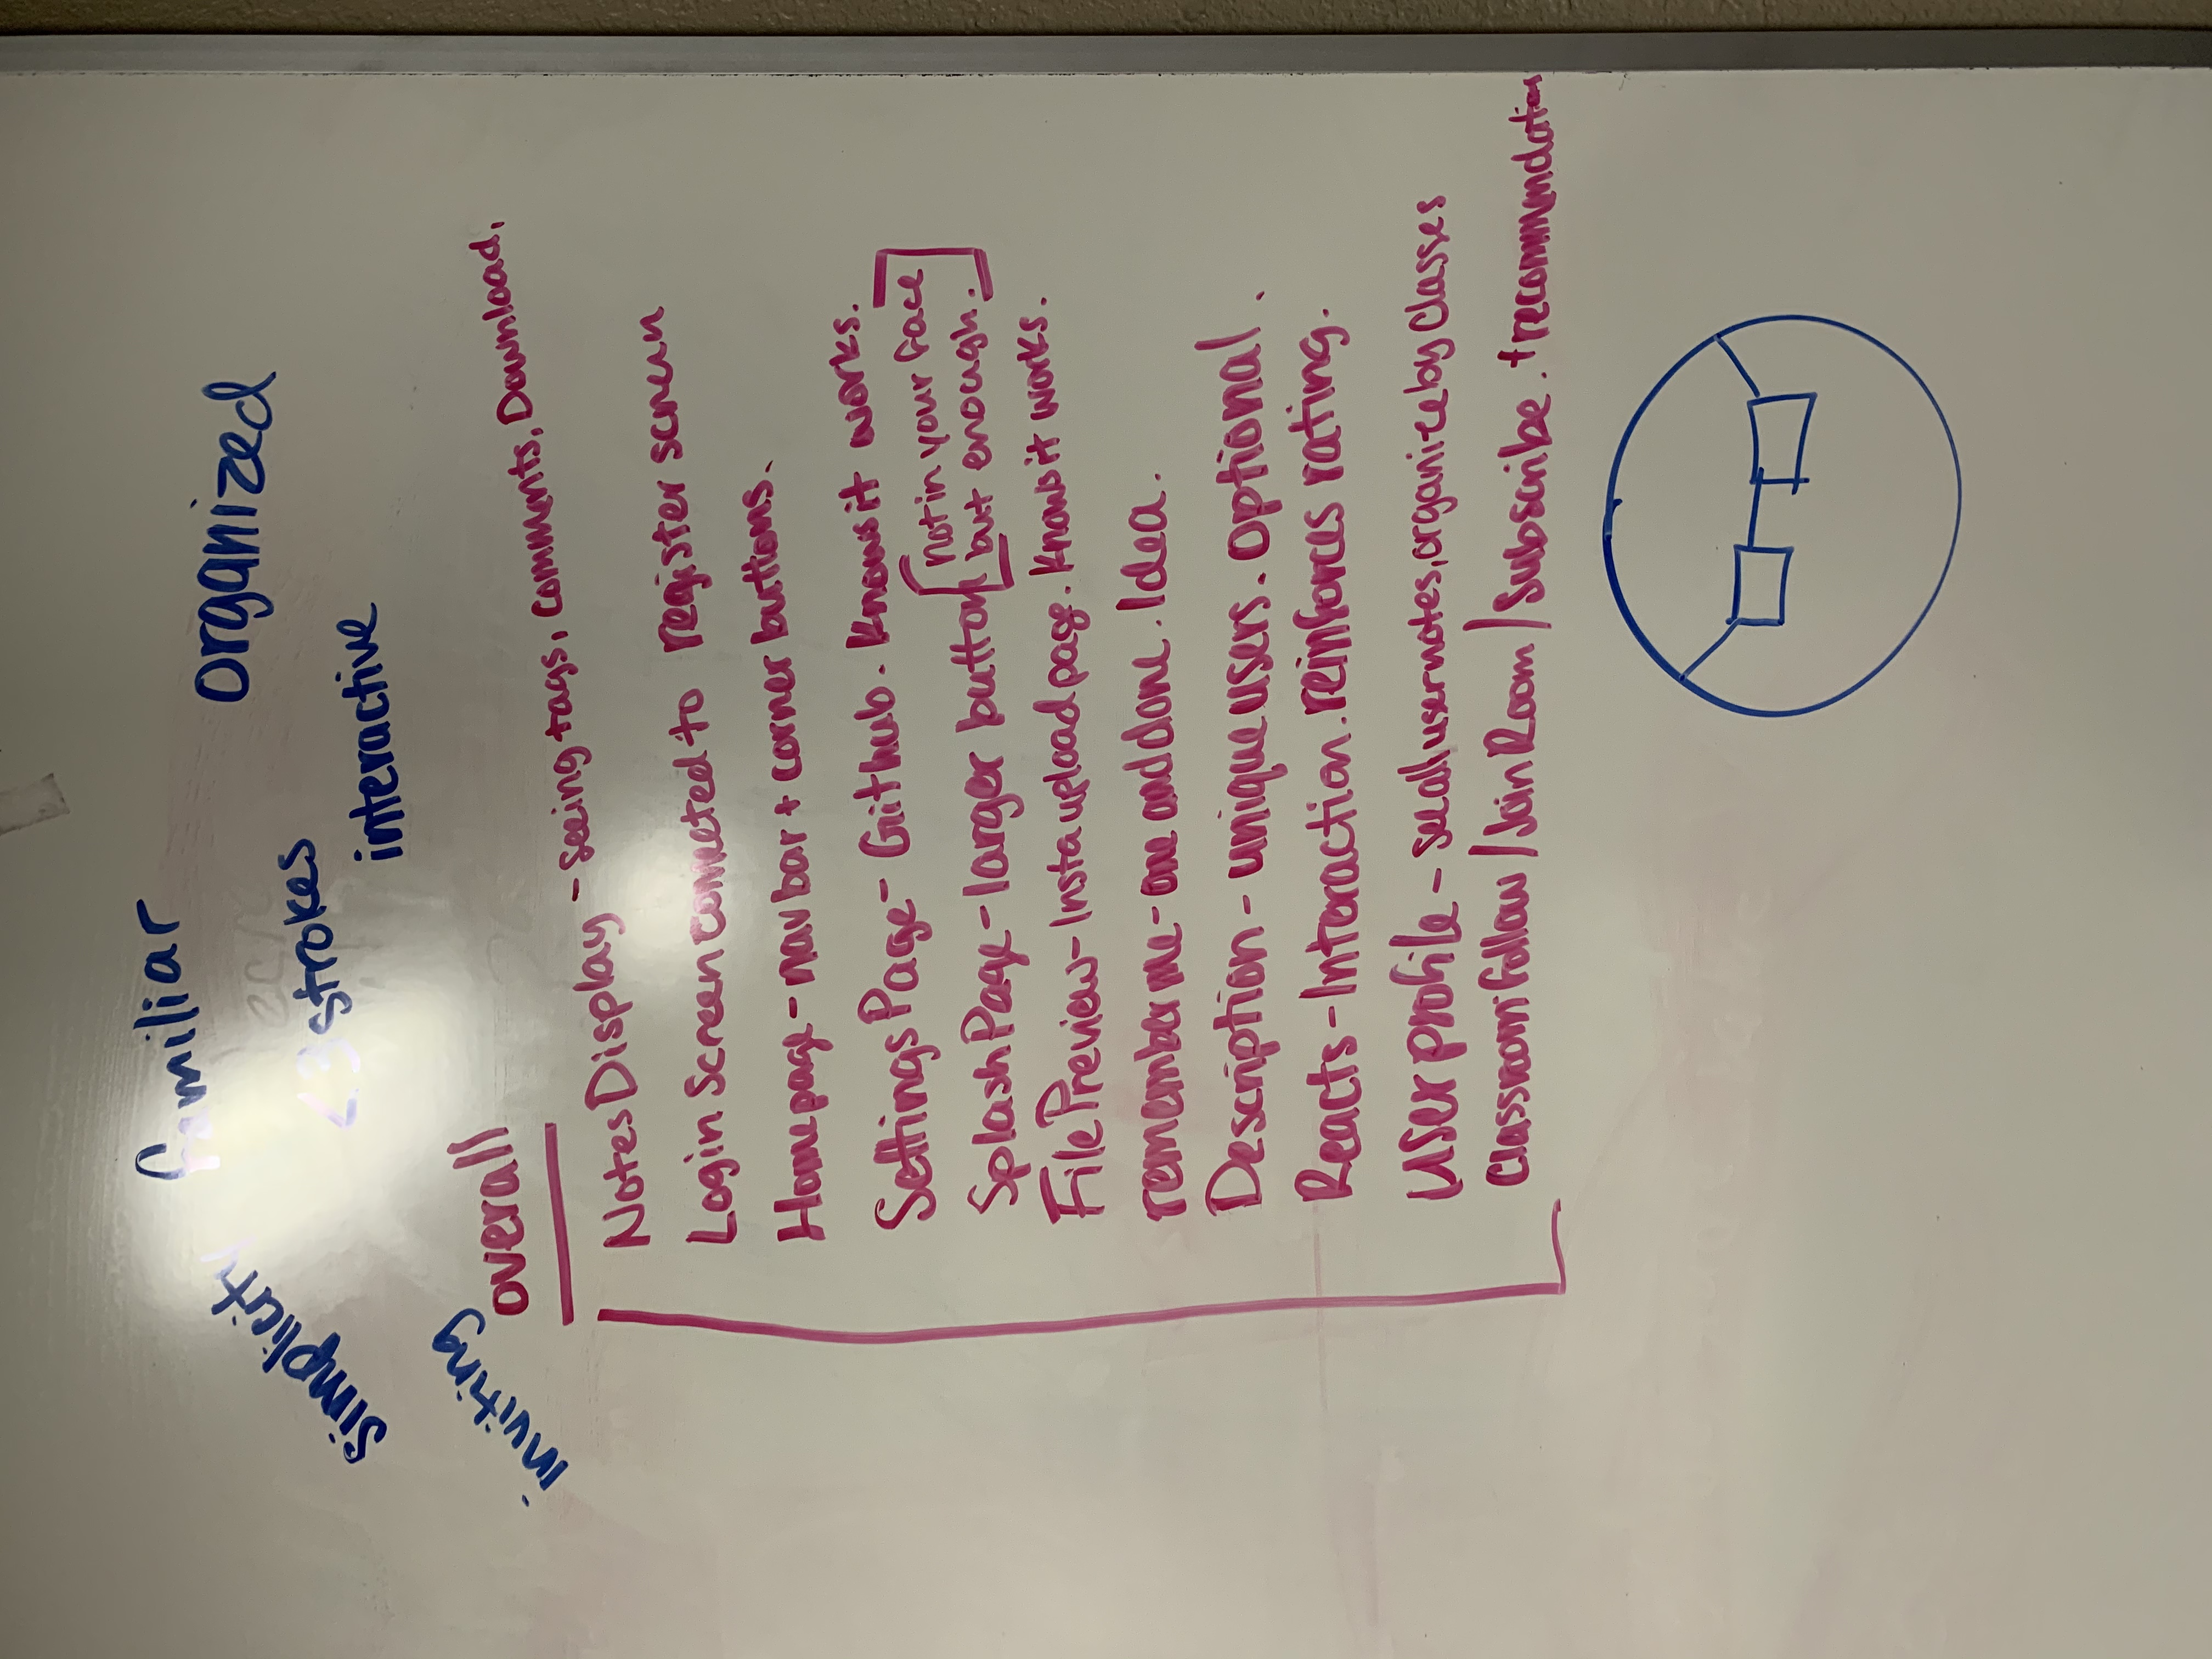 familiar
simplicity
organized
<3 strokes
interactive
inviting
overall
Notes Display - seeing tags, comments, Download,
Login Screen connected to register screen
Homepage - nav bar + corner buttons.
Settings Page - Github. Knows it works.
Splash Page - larger button [not in your face
but enough.]
File Preview - Insta upload page. Knows it works.
remember me - one and done. Idea.
Description - unique users. optional.
Reacts - Interaction. reinforces rating.
User profile - see all user notes, organize by Classes
Classroom follow / Join Room / Subscribe. + recommendations